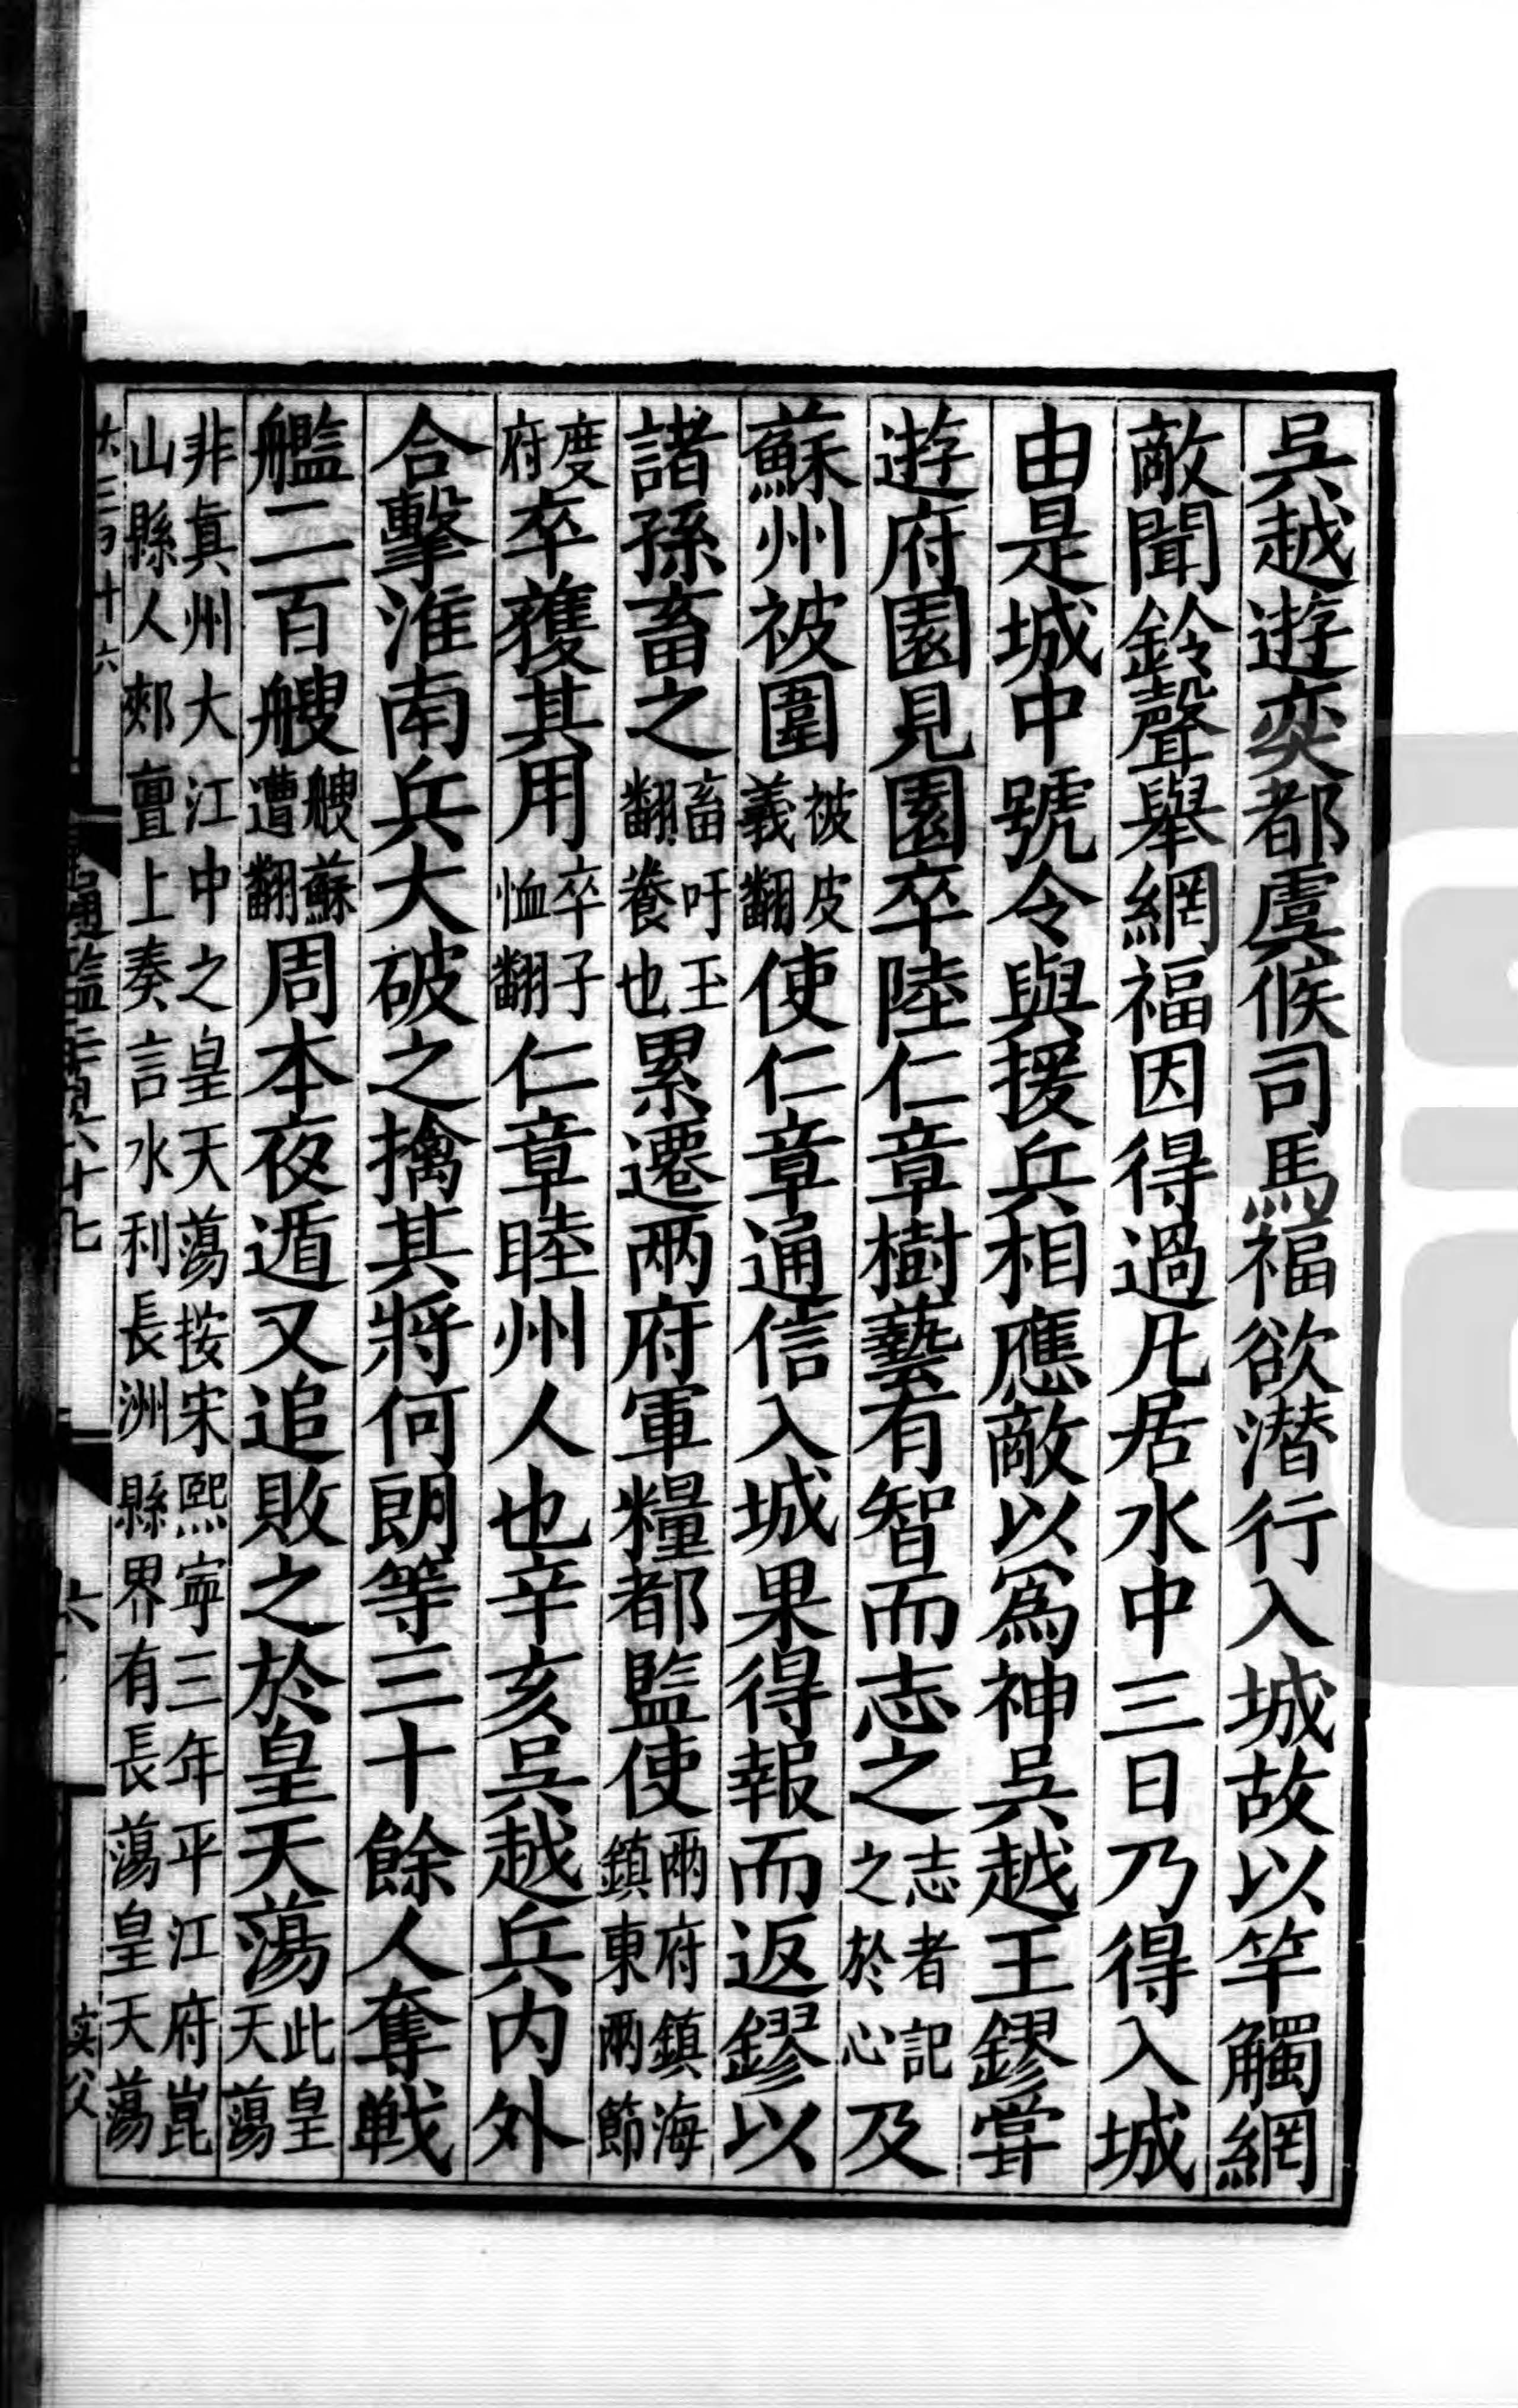 吳越遊奕都虞候司馬福欲潛行入城故以竿觸網
敵聞鈴聲舉網福因得過凡居水中三日乃得入城
由是城中號令與援兵相應敵以爲神吳越王鏐嘗
遊府園見園卒陸仁章樹藝有智而志之志者記之於心及
蘇州被圍被皮義翻使仁章通信入城果得報而返鏐以
諸孫畜之畜吁玉翻養也累遷兩府軍糧都監使兩府鎮海鎮東兩節
度府卒獲其用卒子恤翻仁章睦州人也辛亥吳越兵內外
合擊淮南兵大破之擒其將何朗等三十餘人奪戰
艦二百艘艘蘇遭翻周本夜遁又追敗之於皇天蕩此皇天蕩
非真州大江中之皇天蕩按宋熙寧三年平江府崑
山縣人郟亶上奏言水利長洲縣界有長蕩皇天蕩
通鑑二百六十七
六